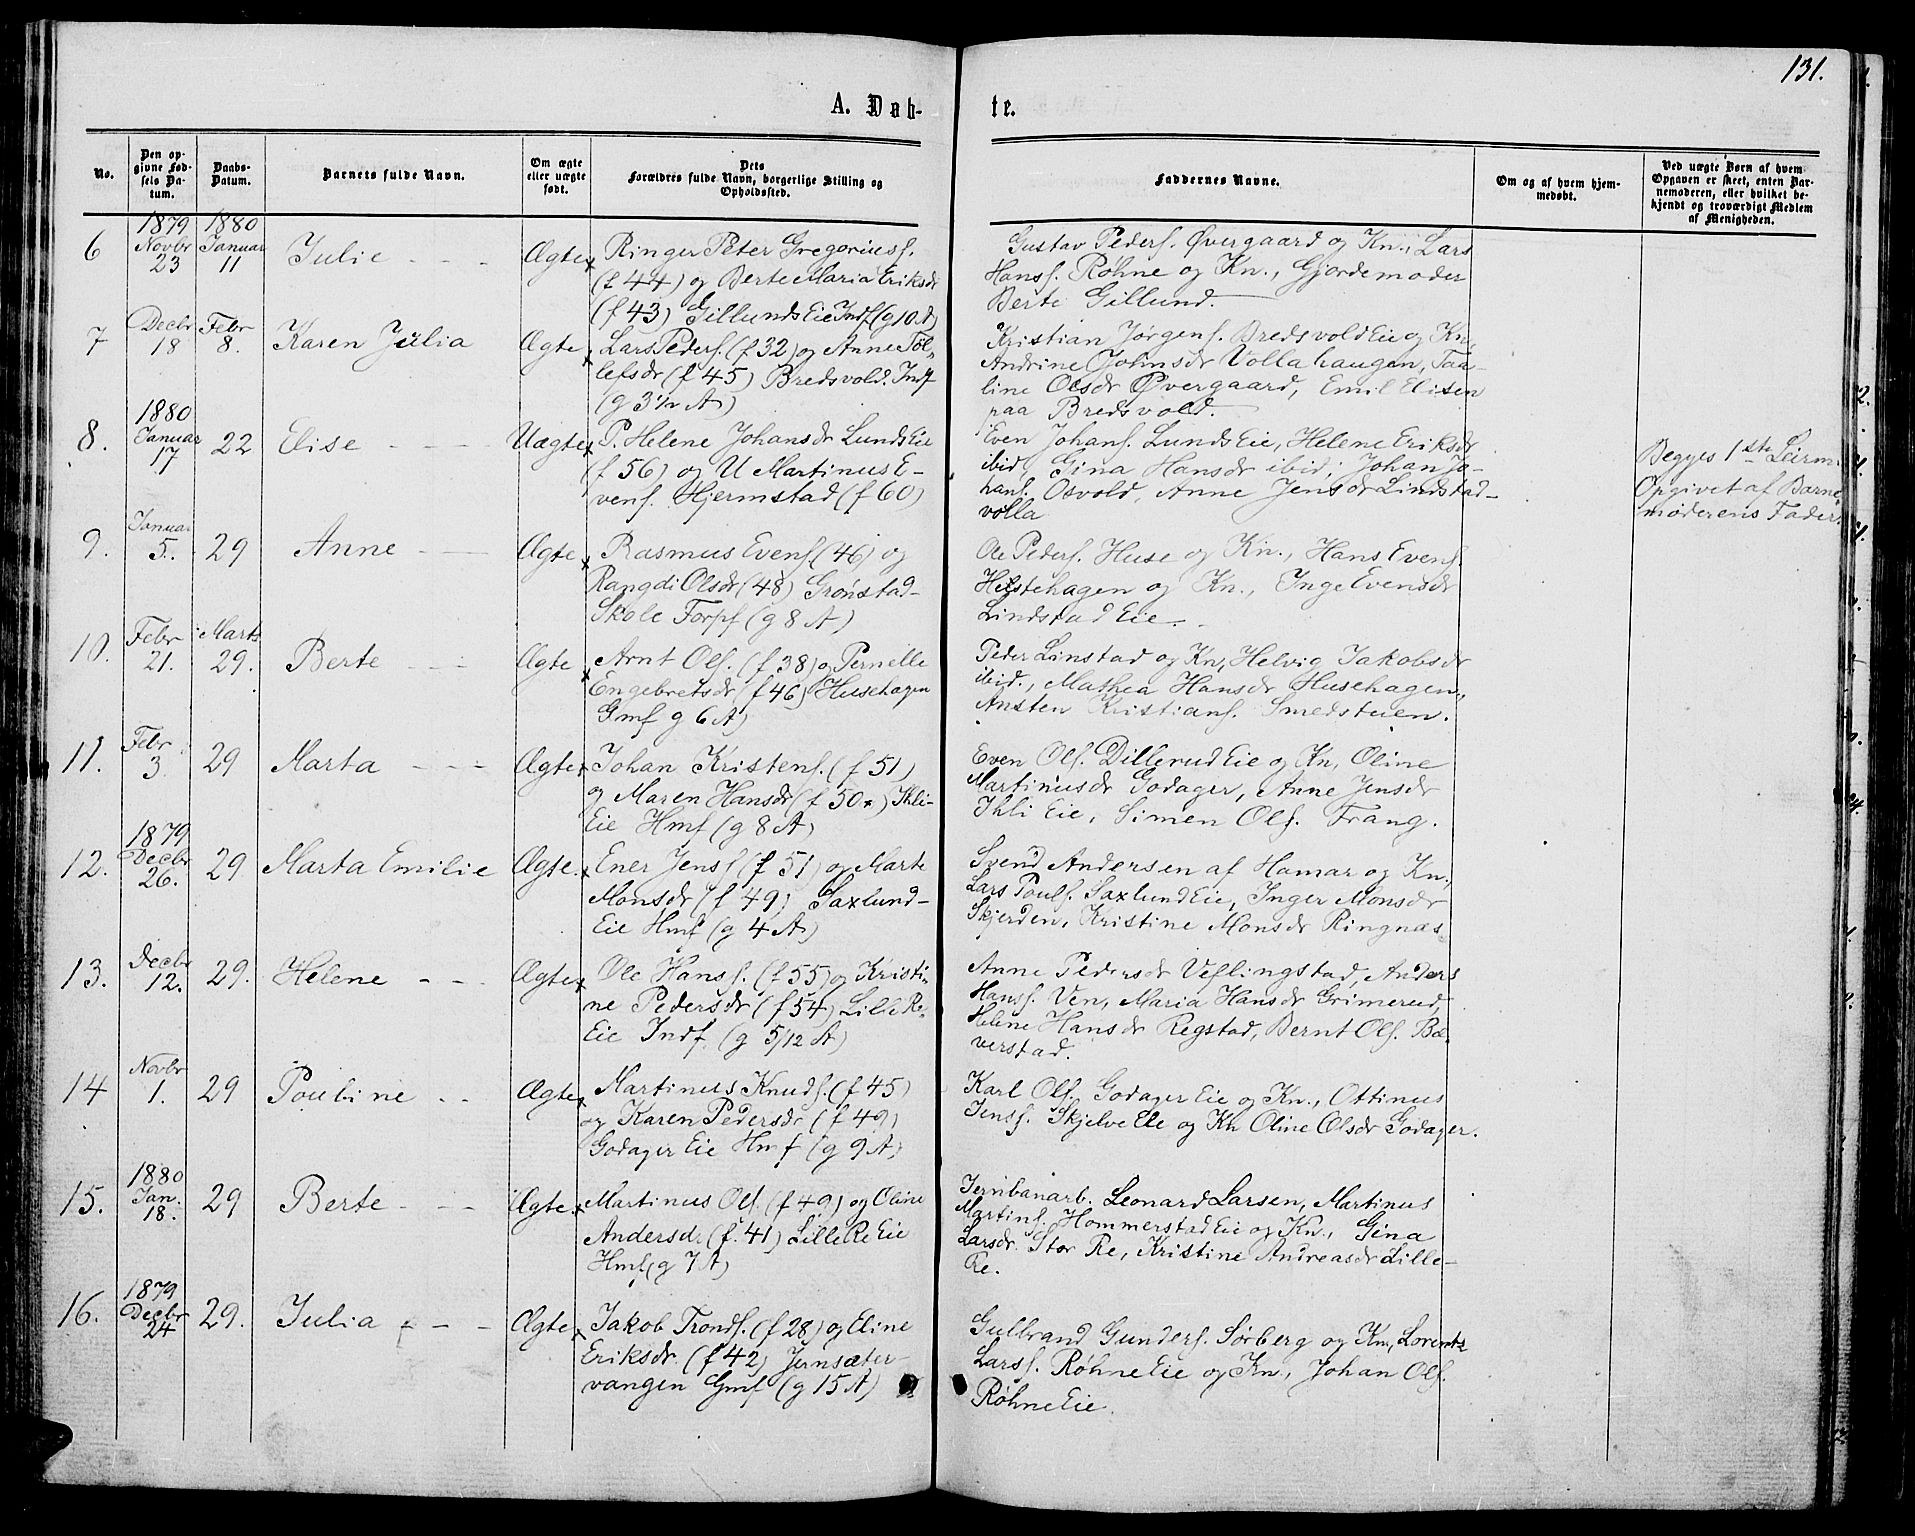 131.
A. Døb- te.
No.
Den op-
givne Fød-
sels Da-
tum.
Daabs-
Datum.
Barnets fulde Navn.
Om ægte
eller uægte
født.
Dets
Forældres fulde Navn, borgerlige Stilling og
Opholdssted.
Faddernes Navne.
Om og af hvem hjem-
medøbt.
Ved uægte Børn af hvem
Opgaven er skeet, enten Bar-
nemoderen, eller hvilket be-
kjendt og troværdigt Medlem
af Menigheden.
1879 1880
6 Novbr 23 Januar 11 Julie - - - Ægte
Ringer Peter Gregoriuss.
(f 44) og Berte Maria Eriksdr
(f 43) Gillunds Eie Indf (g 10 A)
Gustav Peders. Øvergaard og Kn., Lars
Hanss. Røhne og Kn., Gjordemoder
Berte Gillund.
7 Decbr 18 Febr 8. Karen Julia Ægte
Lars Peders. (f 32) og Anne Tol-
lefsdr (f 45) Bredsvold. Indf
(g 3 1/2 A)
Kristian Jørgens. Bredsvold Eie og Kn,
Andrine Johnsdr Vollahaugen, Taa-
line Olsdr Øvergaard, Emil Elisen
paa Bredsvold.
1880
8. Januar 17 22 Elise - - - Uægte
P. Helene Johansdr Lunds Eie
(f 56) og U Martinus E-
vens. Hjermstad (f 60)
Even Johans. Lunds Eie, Helene Eriksdr
ibid, Gina Hansdr ibid, Johan Jo-
hans. Osvold, Anne Jensdr Lindstad-
volla
Begges 1ste Leirm.
Opgivet af Barne-
moderens Fader.
9. Januar 5. 29 Anne - - Ægte
Rasmus Evens. (46) og
Rangdi Olsdr (48) Grønstad-
Skole Forpf (g 8 A)
Ole Peders. Huse og Kn., Hans Evens.
Hestehagen og Kn., Inge Evensdr
Lindstad Eie.
10. Febr 21. Marts 29. Berte - - - Ægte
Arnt Ols. (f 38) og Pernelle
Engebretsdr (f 46) Husehagen
Gmf g 6 A)
Peder Linstad og Kn, Helvig Jakobsdr
ibid., Mathea Hansdr Husehagen,
Ansten Kristians. Smedstuen.
11. Febr 3. 29 Marta - - - Ægte
Johan Kristens. (f 51)
og Maren Hansdr (f 50) Ihli-
Eie Hmf (g 8 A)
Even Ols. Dillerud Eie og Kn, Oline
Martinusdr Godager, Anne Jensdr
Ihli Eie, Simen Ols. Frang.
1879
12. Decbr 26. 29 Marta Emilie Ægte.
Ener Jens. (f 51) og Marte
Monsdr (f 49) Saxlund-
Eie Hmf (g 4 A)
Svend Andersen af Hamar og Kn.,
Lars Pouls. Saxlund Eie, Inger Monsdr
Skjerden, Kristine Monsdr Ringnæs.
13. Decbr 12. 29. Helene - - Ægte
Ole Hanss. (f 55) og Kristi-
ne Pedersdr (f 54) Lille Re-
Eie Indf. (g 5/12 A)
Anne Pedersdr Veflingstad, Anders
Hanss. Ven, Maria Hansdr Grimerud,
Helene Hansdr Regstad, Bernt Ols. Bæ-
verstad.
14 Novbr 1. 29 Pouline - - Ægte
Martinus Knuds. (f 45)
og Karen Pedersdr (f 49)
Godager Eie Hmf (g 9 A)
Karl Ols. Godager Eie og Kn., Ottinus
Jenss. Skjelve Eie og Kn Oline Olsdr Godager.
1880
15. Jan. 18. 29 Berte - - - Ægte.
Martinus Ols. (f 49) og Oline
Andersdr (f. 41) Lille Re Eie
Hmf (g 7 A)
Jernbanarb. Leonard Larsen, Martinus
Martins. Hommerstad Eie og Kn., Gina
Larsdr Stor Re, Kristine Andreasdr Lille-
Re.
1879
16. Decbr 24 29. Julia - - - Ægte
Jakob Tronds. (f 28) og Eline
Eriksdr. (f 42) Jernsæter-
vangen Gmf (g 15 A)
Gulbrand Gunders. Sørberg og Kn, Lorentz
Larss. Røhne Eie og Kn., Johan Ols.
Røhne Eie.